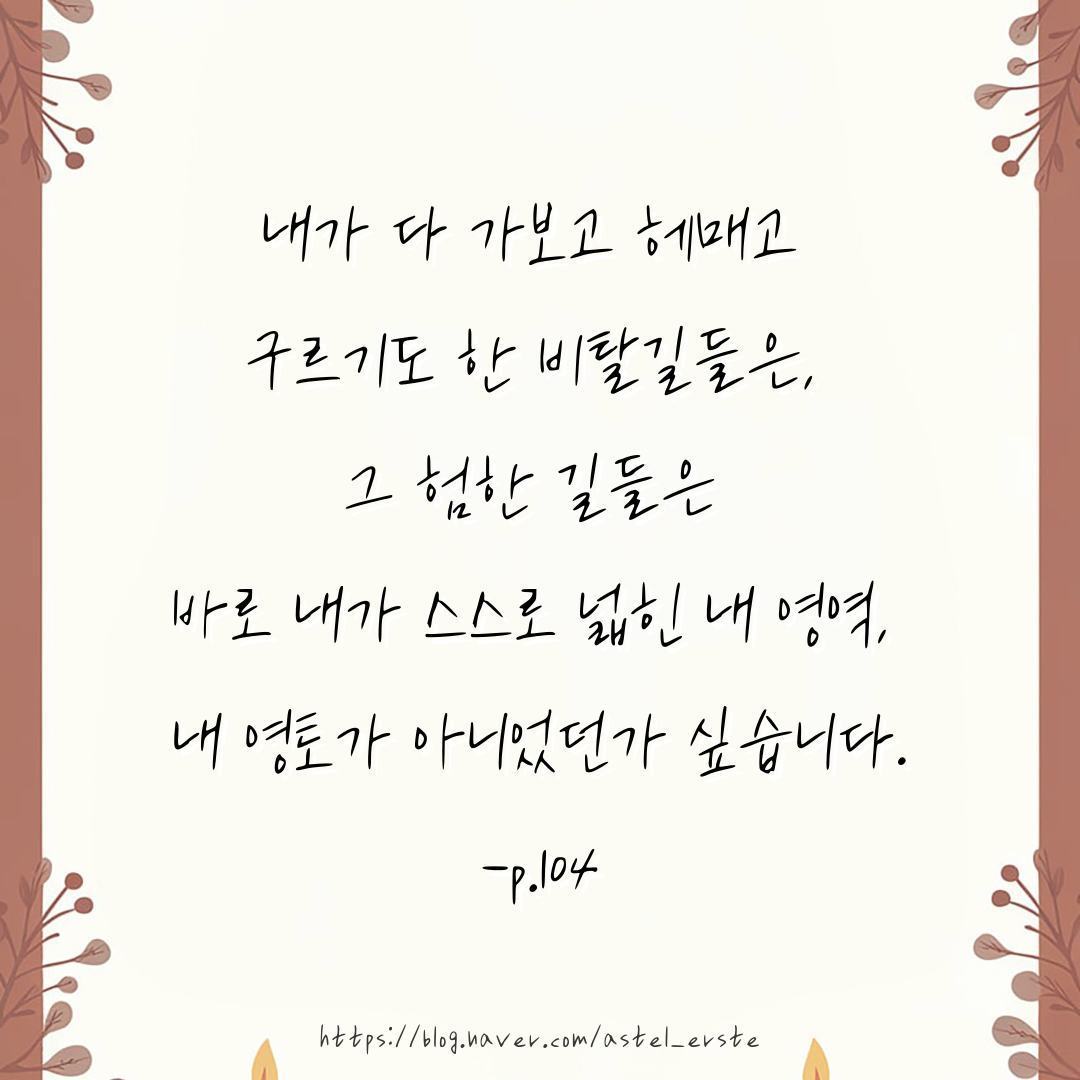 내가 다 가보고 헤매고
구르기도 한 비탈길들은,
그 험한 길들은
바로 내가 스스로 넓힌 내 영역,
내 영토가 아니었던가 싶습니다.
-p.104
https://blog.naver.com/astel_erste